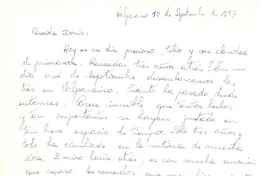 Valparaíso 10 de Septiembre de 1957
Querida Doris:
Hoy es un día precioso, tibio y con claridad
de primavera. Remedas tres años atrás. Un
día así de Septiembre desembarcamos los
tres en Valparaíso. Cuánto ha pasado desde
entonces. Parece increíble que tantos hechos
y tan importantes se hayan juntado en
tan breve espacio de tiempo. Sólo tres años y
todo ha cambiado en la rutina de nuestra
vida. Si miro hacia atrás, es con mucha
que repaso los recuerdos que me